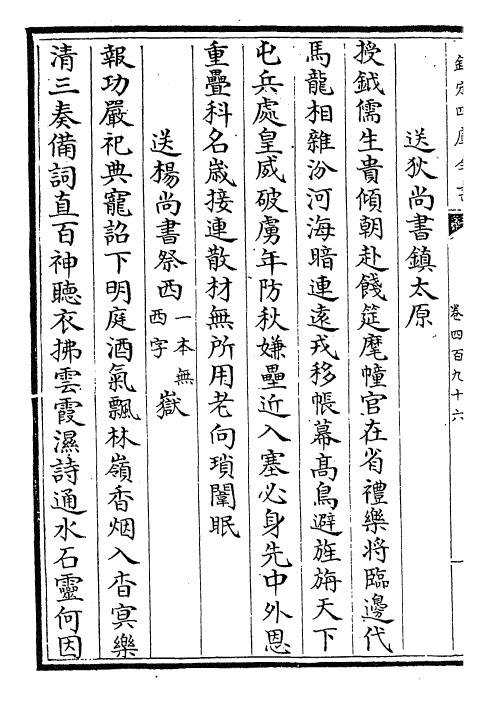 欽定四庫全書
卷四百九十六
一
送狄尚書鎮太原
授鉞儒生貴傾朝赴餞筵麾幢官在省禮樂將臨邊代
馬龍相雜汾河海暗連遠戎移帳幕高鳥避旌旃天下
屯兵處皇威破虜年防秋嫌壘近入塞必身先中外恩
重疊科名嵗接連散材無所用老向瑣闈眠
送楊尚書祭西一本無西字嶽
報功嚴祀典寵詔下明庭酒氣飄林嶺香烟入杳冥樂
清三奏備詞直百神聽衣拂雲霞濕詩通水石靈何因